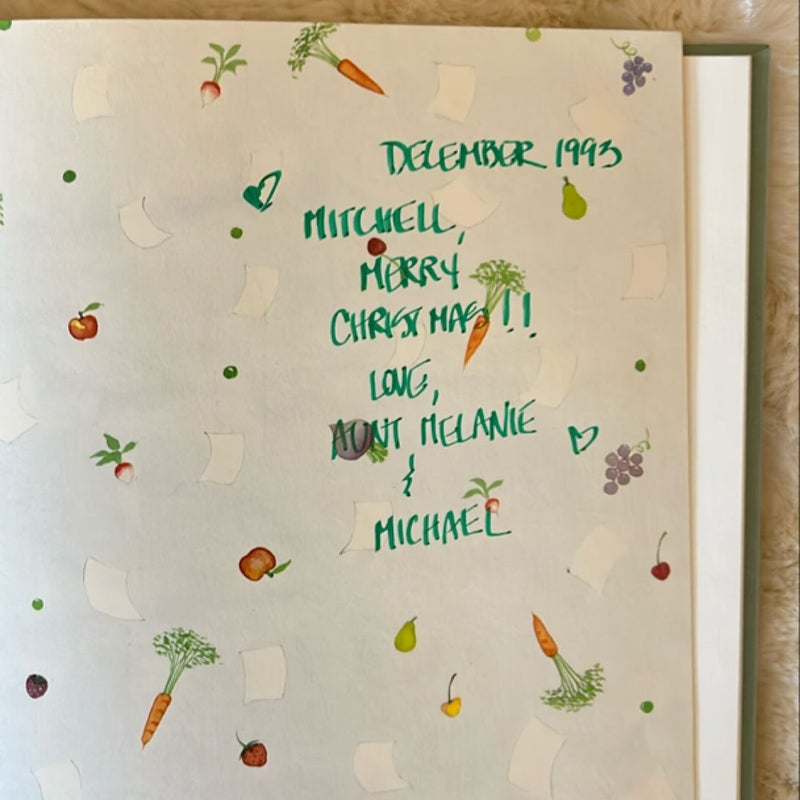 DECEMBER 1993
MITCHELL,
MERRY
CHRISTMAS!!
LOVE,
AUNT MELANIE
&
MICHAEL